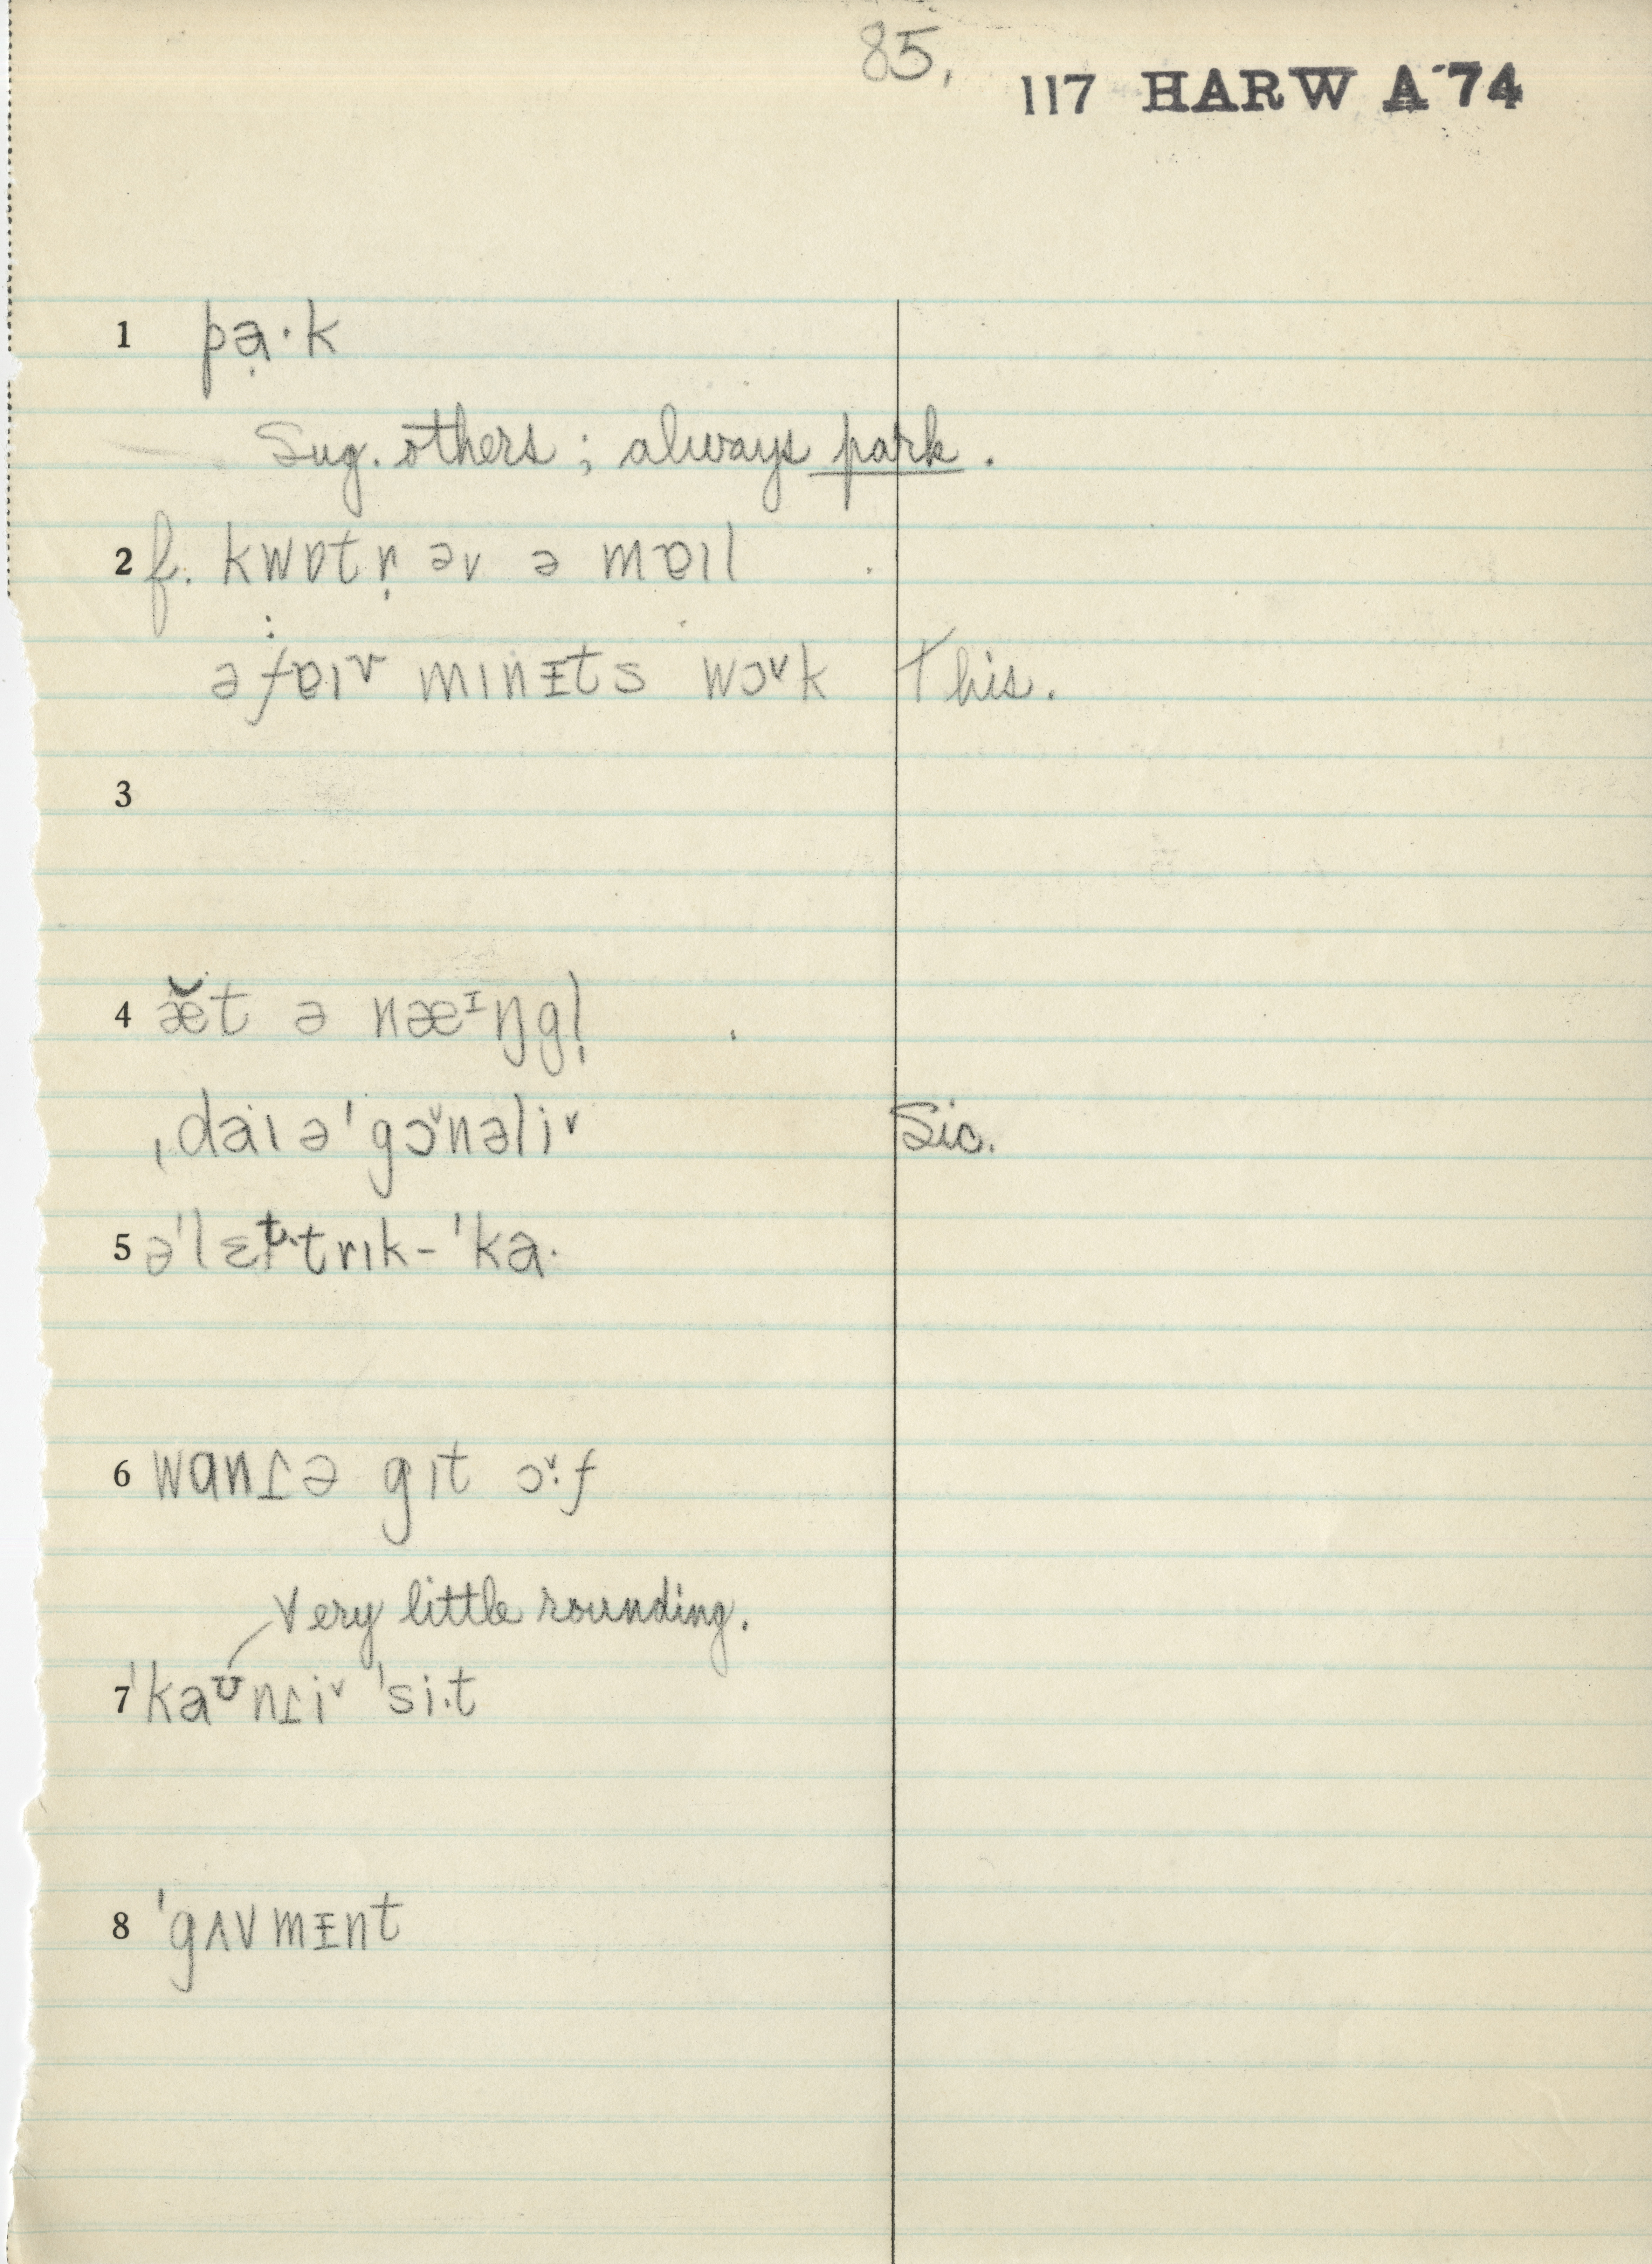 85.
117 HARW A 74
1 pạ·k
Sug. others; always park.
2 f. kwɒtr̩ əv ə mɐɪl
ə fɐɪv mɪnᵻts wɔ˅k This.
3
4 æ̆t ə næᶦŋgl̩
ˌdaɪəˈgɔ˅nəli˅ Sic.
5 əˈlɛt·trɪk-ˈka·
6 wanɾ̯ə gɪt ɔ˅·f
Very little rounding.
7 ˈkaᶷnɾ̯i˅ ˈsi·t
8 ˈgʌvmᵻnt